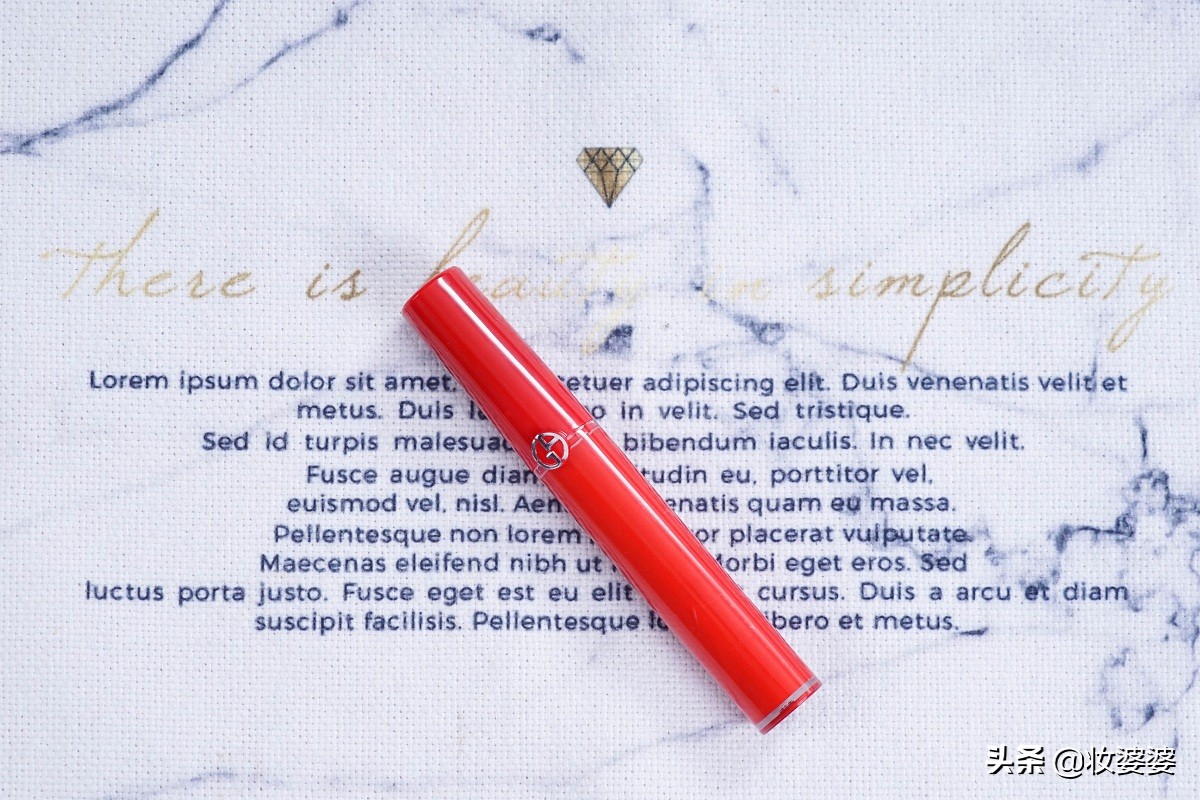 there is beauty in simplicity
Lorem ipsum dolor sit amet, setuer adipiscing elit. Duis venenatis velit et
metus. Duis in velit. Sed tristique.
Sed id turpis malesuad bibendum iaculis. In nec velit.
Fusce augue diam tudin eu, porttitor vel,
euismod vel, nisl. Aen enatis quam eu massa.
Pellentesque non lorem or placerat vulputate.
Maecenas eleifend nibh ut Morbi eget eros. Sed
luctus porta justo. Fusce eget est eu elit cursus. Duis a arcu et diam
suscipit facilisis. Pellentesque libero et metus.
头条 @妆婆婆